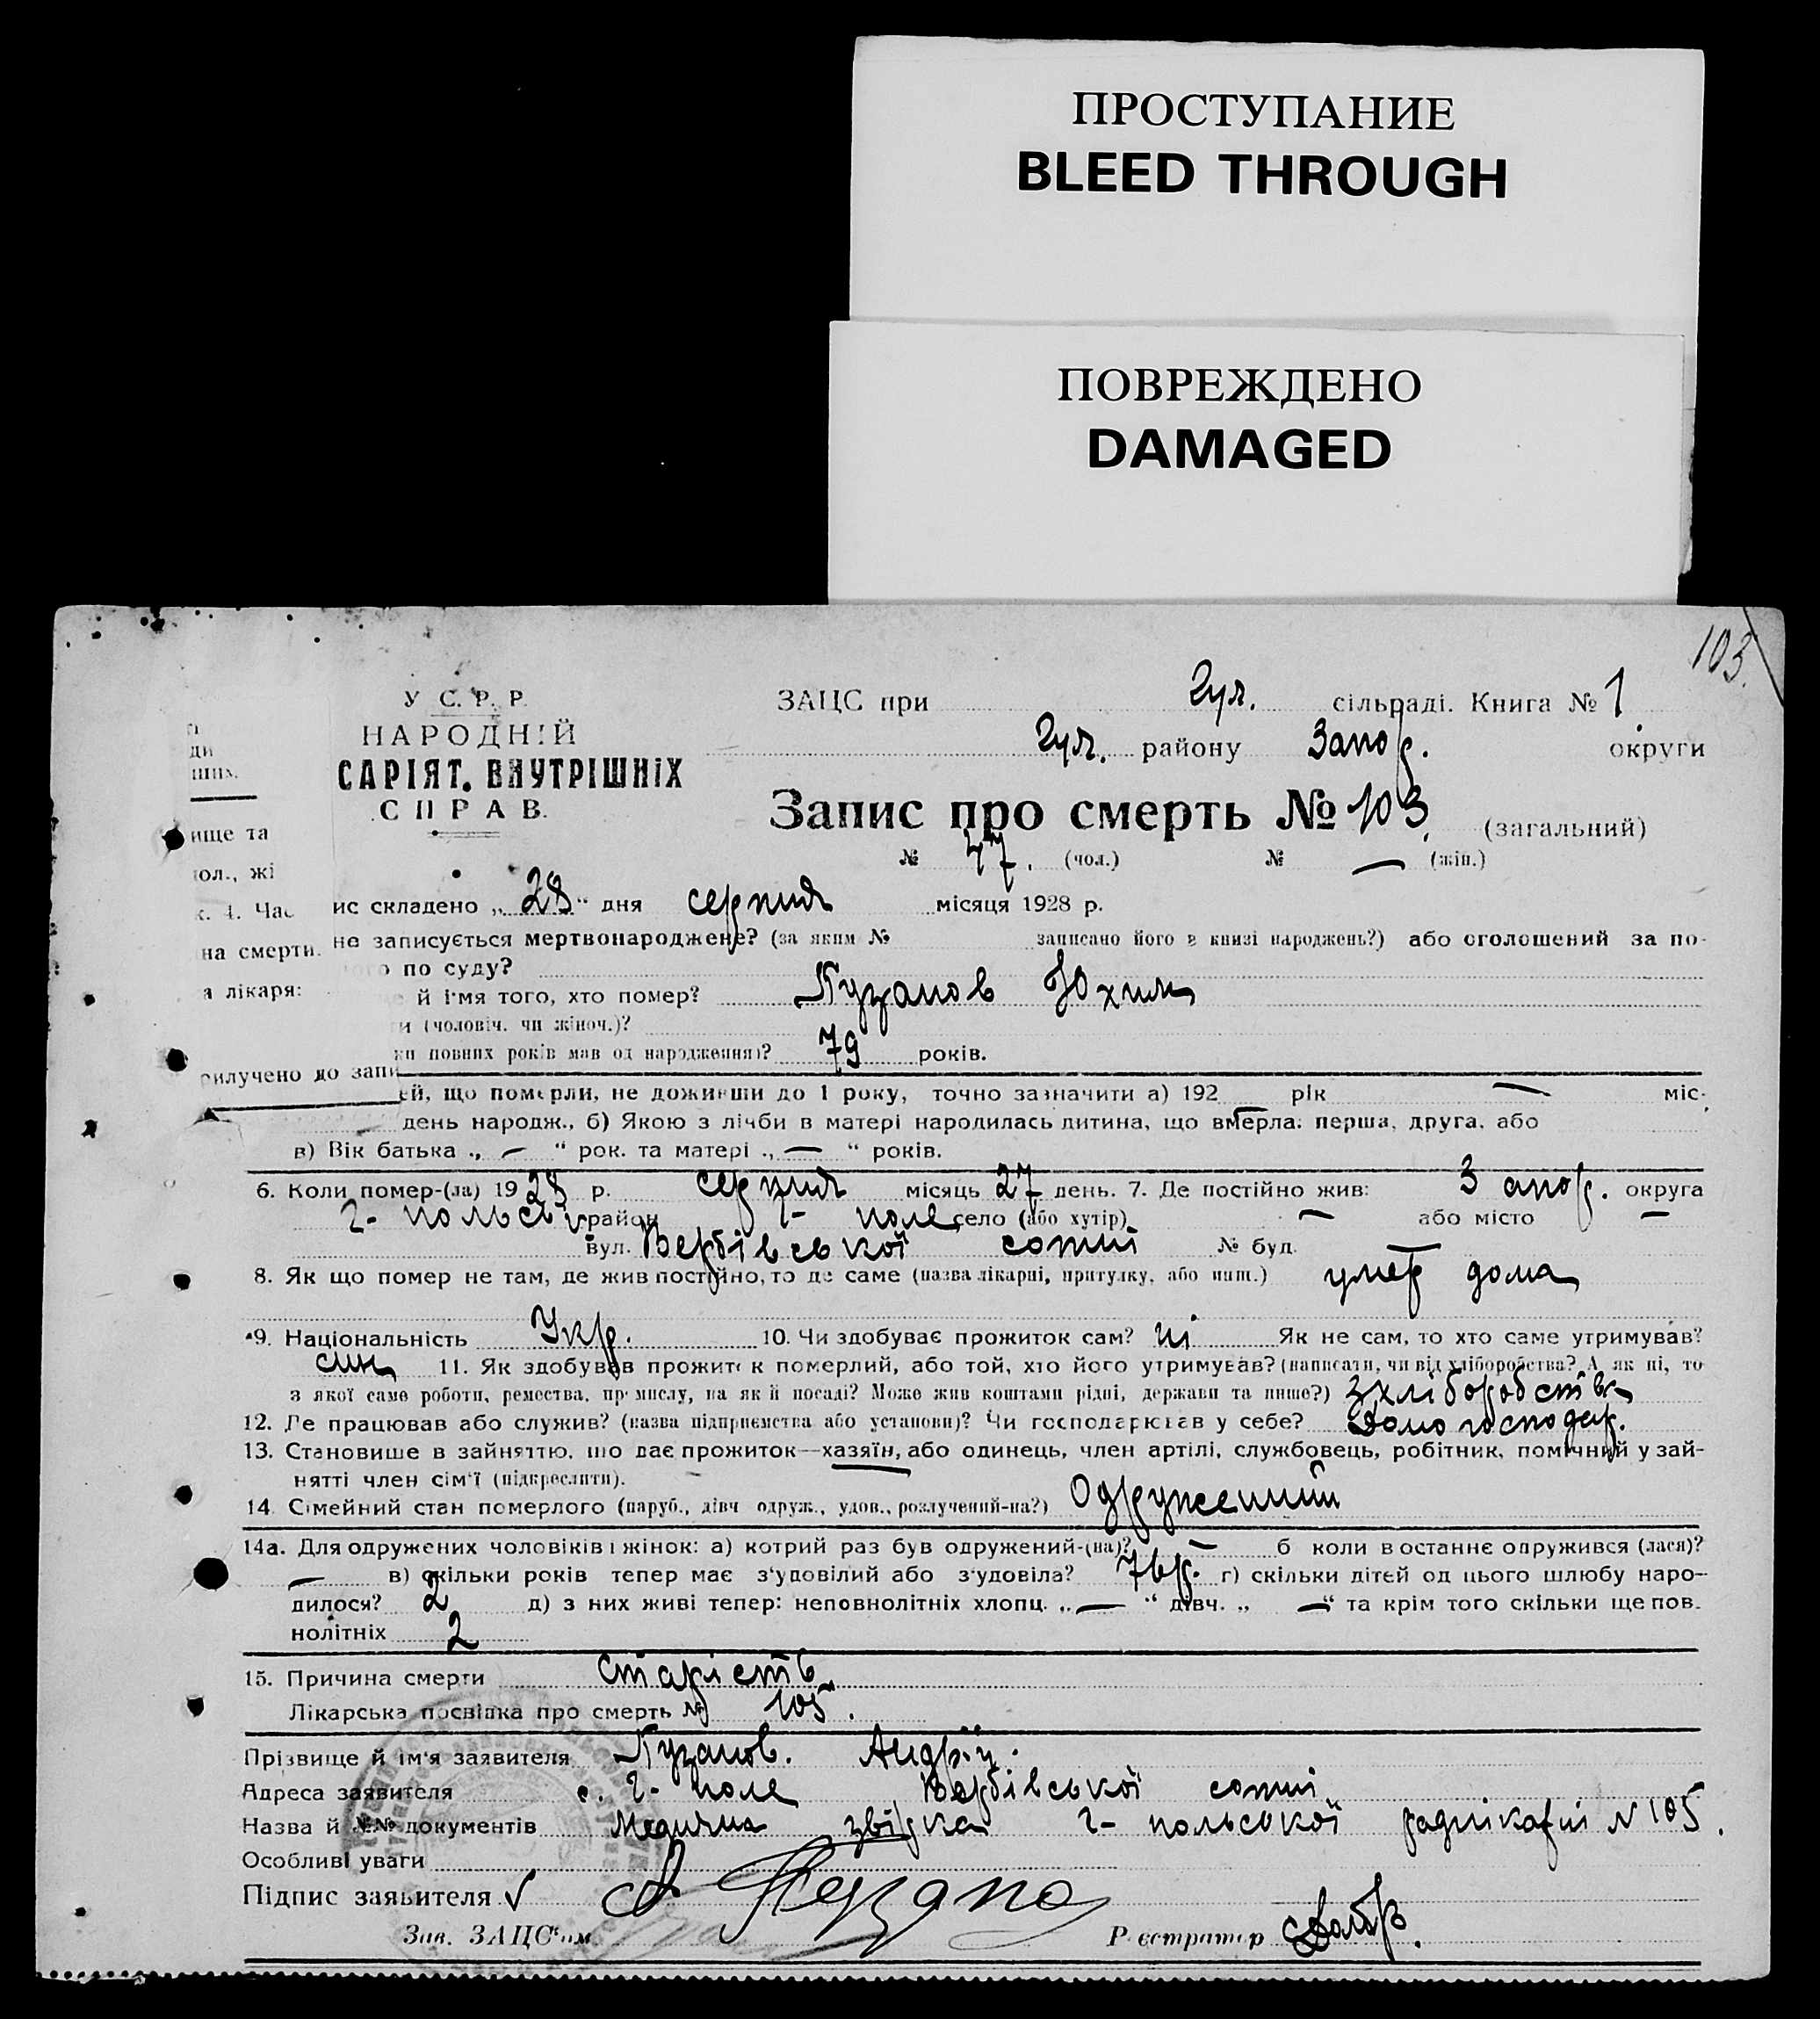 ПРОСТУПАНИЕ
BLEED THROUGH
ПОВРЕЖДЕНО
DAMAGED
103.
У С. Р. Р.
НАРОДНІЙ
САРІЯТ. ВНУТРІШНІХ
СПРАВ.
ди
ших.
ище та
ол., жі
к. 4. Час
на смерти.
а лікаря:
рилучено до запи
ЗАЦС при Гул. сільраді. Книга № 1
Гул. району Запор. округи
Запис про смерть № 103. (загальний)
№ 47. (чол.) № — (жін.)
ис складено „28“ дня серпня місяця 1928 р.
не записується мертвонароджене? (за яким № записано його в книзі народжень?) або оголошений за по-
ого по суду?
й ім'я того, хто помер? Пузанов Юхим
и (чоловіч. чи жіноч.)?
ки повних років мав од народження)? 79 років.
ей, що померли, не доживши до 1 року, точно зазначити а) 192 рік — міс.
день народж., б) Якою з лічби в матері народилась дитина, що вмерла: перша, друга, або
в) Вік батька „ — “ рок. та матері „ — “ років.
6. Коли помер-(ла) 1928 р. серпня місяць 27 день. 7. Де постійно жив: Запор. округа
Г-польськ район Г-поле село (або хутір) — або місто —
вул. Вербівської сотні № буд. —
8. Як що помер не там, де жив постійно, то де саме (назва лікарні, притулку, або инш.) умер дома
9. Національність Укр. 10. Чи здобуває прожиток сам? ні Як не сам, то хто саме утримував?
син 11. Як здобував прожиток померлий, або той, хто його утримував? (написати, чи від хліборобства? А як ні, то
з якої саме роботи, ремества, промислу, на якій посаді? Може жив коштами рідні, держави та инше?) З хліборобства
12. Де працював або служив? (назва підприємства або установи)? Чи господарював у себе? Домогосподар.
13. Становище в зайняттю, що дає прожиток—хазяїн, або одинець, член артілі, службовець, робітник, помічний у зай-
нятті член сім'ї (підкреслити).
14. Сімейний стан померлого (паруб., дівч одруж., удов., розлучений-на?) Одружений
14а. Для одружених чоловіків і жінок: а) котрий раз був одружений-(на)? — б коли востаннє одружився (лася)?
— в) скільки років тепер має з'удовілий або з'удовіла? 76 р. г) скільки дітей од цього шлюбу наро-
дилося? 2 д) з них живі тепер: неповнолітніх хлопц. „ — “ дівч. „ — “ та крім того скільки ще пов.
нолітніх 2
15. Причина смерти старість
Лікарська посвідка про смерть № 105.
Прізвище й ім'я заявителя Пузанов. Андрій.
Адреса заявителя с. Г-поле Вербівської сотні
Назва й №№ документів Медична Г-польської N 105.
Особливі уваги
Підпис заявителя √ А Пузано
Зав. ЗАЦС'ом Реєстратор